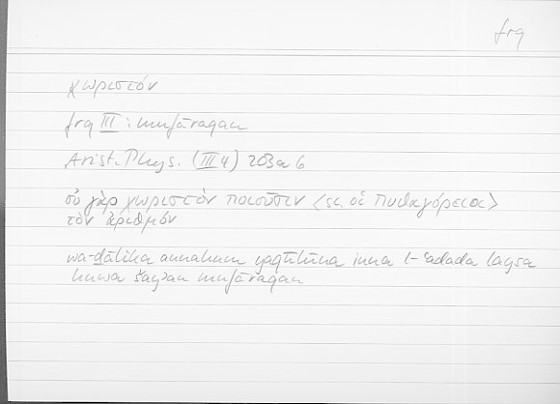 frq
χωριστόν
frq III : mufāraqan
Arist. Phys. (III 4) 203a6
οὐ γὰρ χωριστὸν ποιοῦσιν <sc. οἱ Πυθαγόρειοι>
τὸν ἀριθμόν
wa-ḏālika annahum yaqūlūna inna l-ʿadada laysa
huwa šayʾan mufāraqan